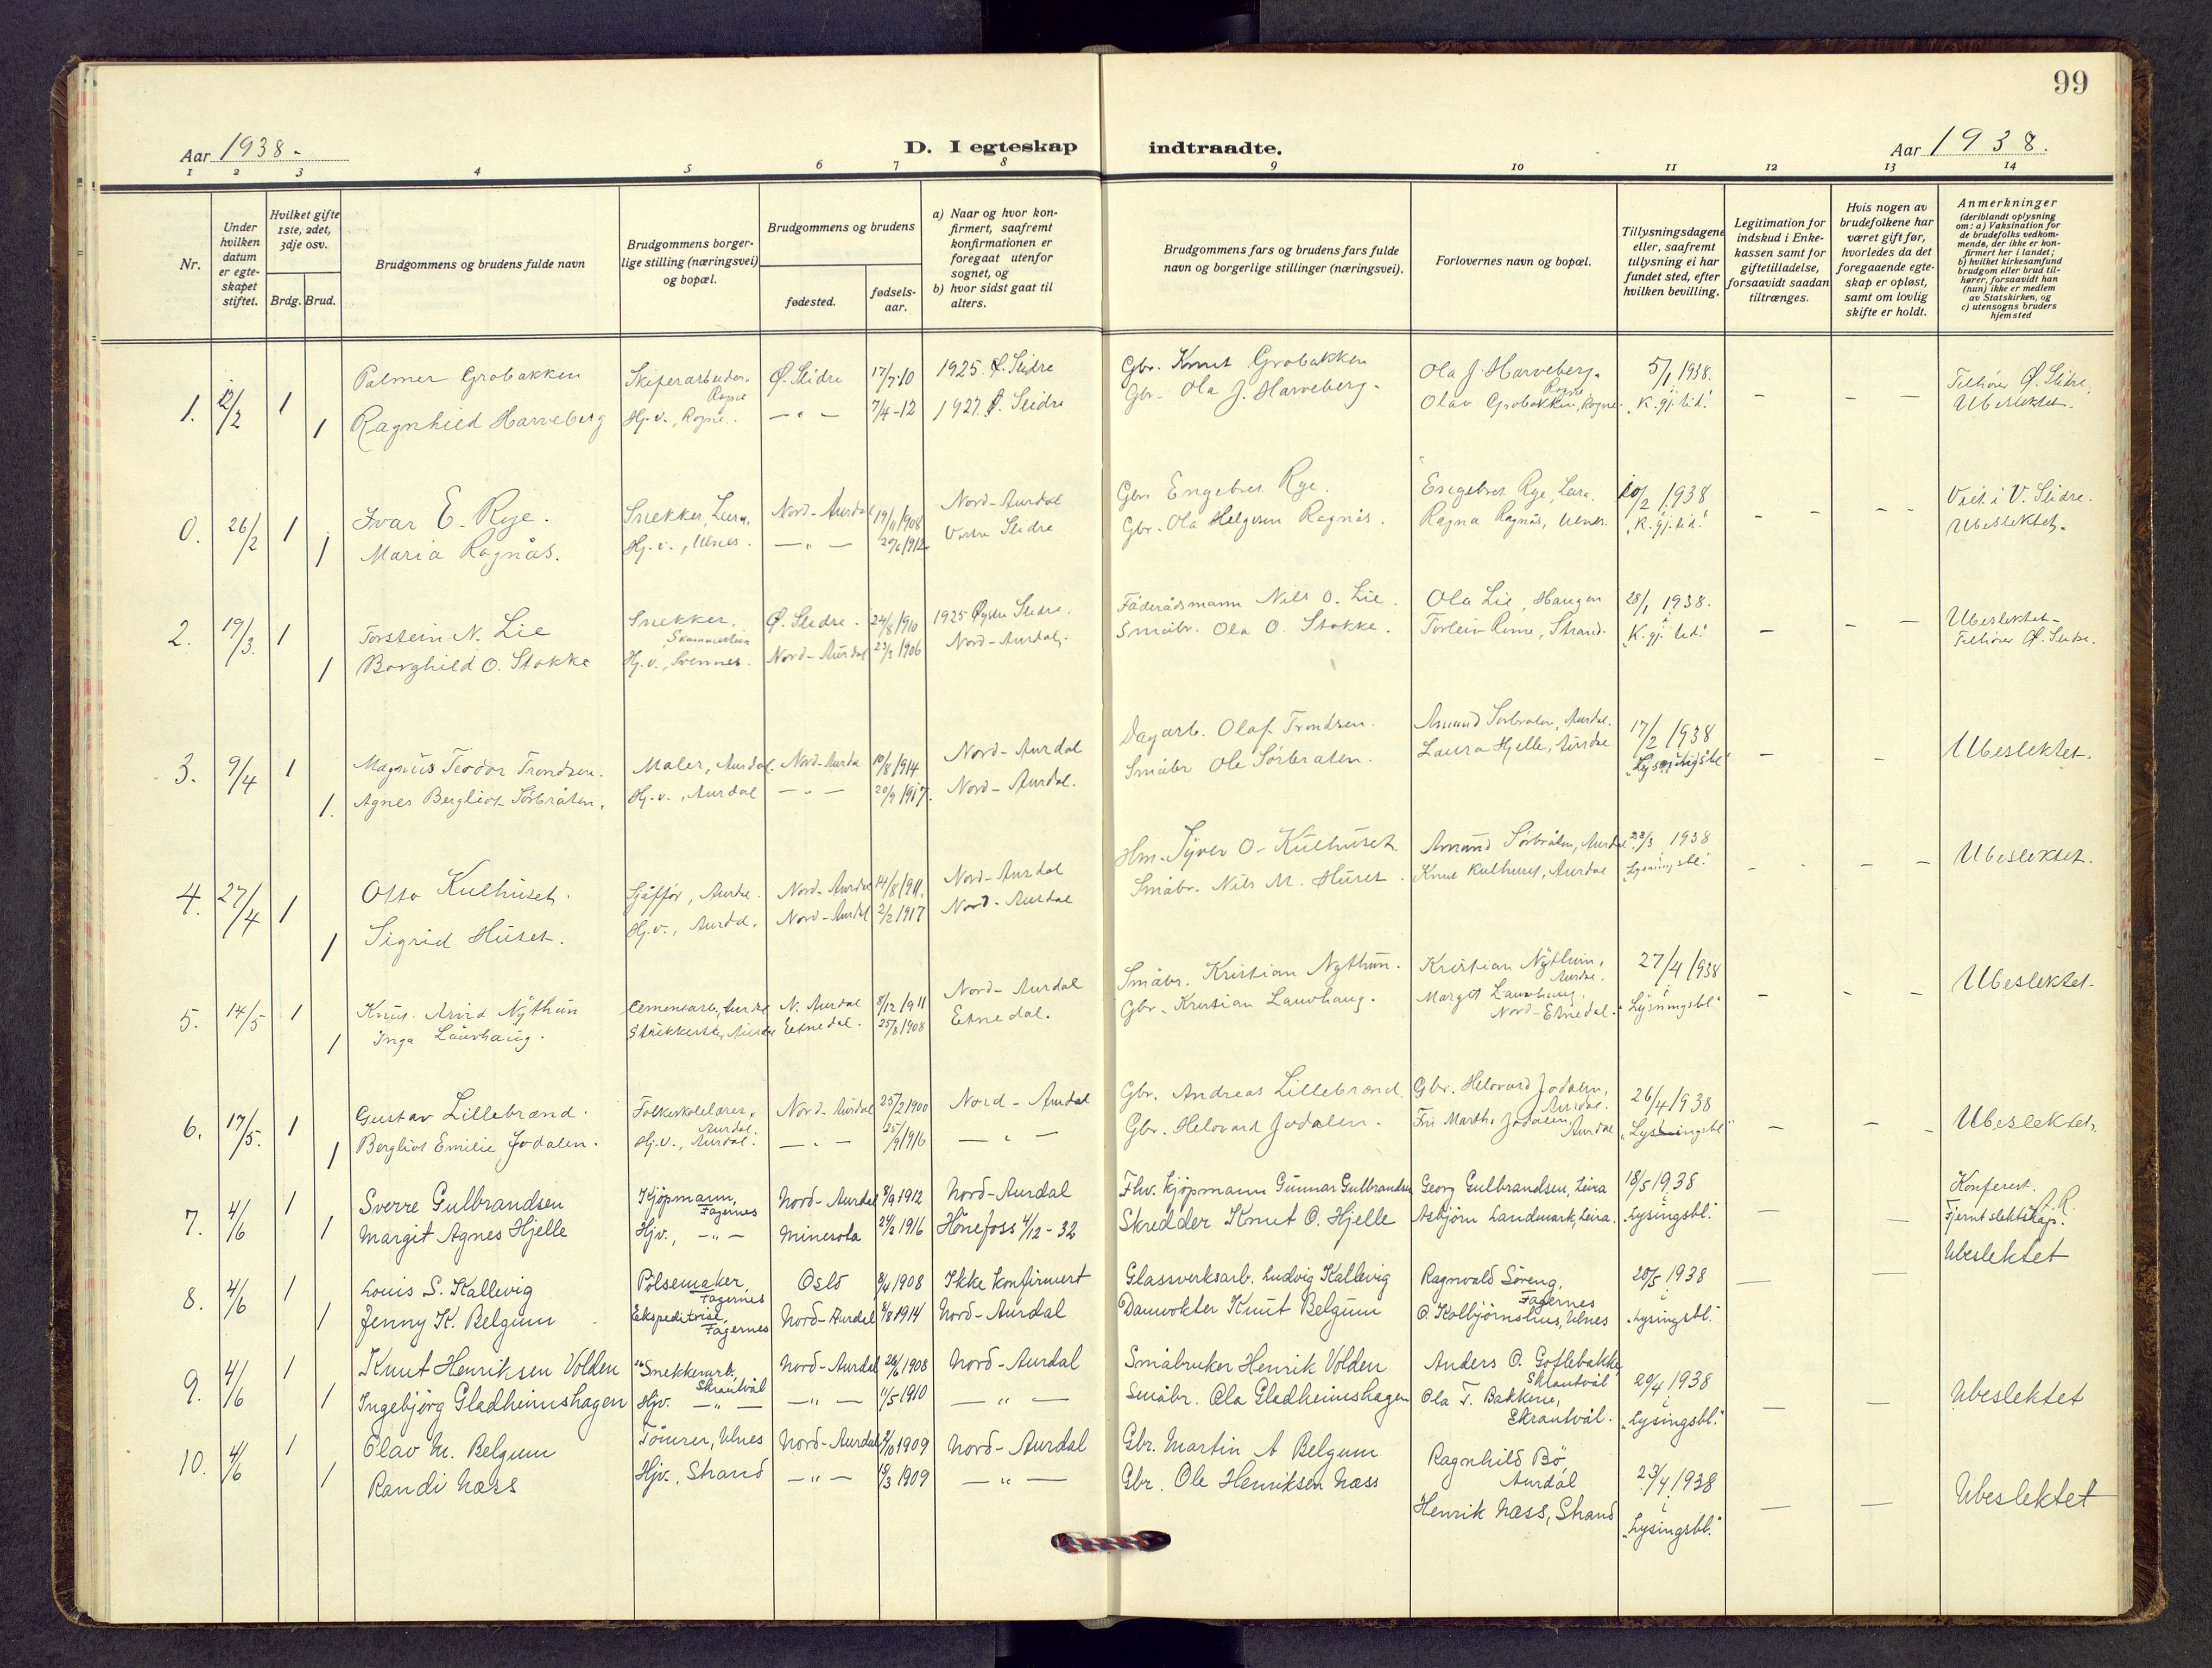 99
Aar 1938.-
D. I egteskap indtraadte.
Aar 1938.
1 2 3 4 5 6 7 8 9 10 11 12 13 14
Nr.
Under hvilken datum er egte-skapet stiftet.
Hvilket gifte 1ste, 2det, 3dje osv.
Brdg. Brud.
Brudgommens og brudens fulde navn
Brudgommens borger-lige stilling (næringsvei) og bopæl.
Brudgommens og brudens
fødested.
fødsels-aar.
a) Naar og hvor kon-firmert, saafremt konfirmationen er foregaat utenfor sognet, og
b) hvor sidst gaat til alters.
Brudgommens fars og brudens fars fulde navn og borgerlige stillinger (næringsvei).
Forlovernes navn og bopæl.
Tillysningsdagene eller, saafremt tillysning ei har fundet sted, efter hvilken bevilling.
Legitimation for indskud i Enke-kassen samt for giftetilladelse, forsaavidt saadan tiltrænges.
Hvis nogen av brudefolkene har været gift før, hvorledes da det foregaaende egte-skap er opløst, samt om lovlig skifte er holdt.
Anmerkninger (deriblandt oplysning om: a) Vaksination for de brudefolks vedkom-mende, der ikke er kon-firmert her i landet; b) hvilket kirkesamfund brudgom eller brud til-hører, forsaavidt han (hun) ikke er medlem av Statskirken, og c) utensogns bruders hjemsted
1. 12/2 1 Palmer Grobakken Skiferarbeider, Rogne Ø. Slidre 17/7-10 1925 Ø. Slidre Gbr. Knut Grobakken Ola J. Harveberg, Rogne 5/1 1938. - - - Tilhører Ø. Slidre.
1 Ragnhild Harveberg Hj.v., Rogne. — " — 7/4-12 1927 Ø. Slidre Gbr. Ola J. Harveberg. Olav Grobakken, Rogne. i "K. gj. tid." Ubeslektet.
0. 26/2 1 Ivar E. Rye. Snekker, Leira. Nord-Aurdal 19/11 1908 Nord-Aurdal Gbr. Engebret Rye. Engebret Rye, Leira. 10/2 1938 - - - Viet i V. Slidre.
1 Maria Ragnås. Hj.v., Ulnes. — " — 1912 Vestre Slidre Gbr. Ola Helgesen Ragnås. Ragna Ragnås, Ulnes. "K. gj. tid." Ubeslektet.
2. 19/3. 1 Torstein N. Lie Snekker, Ø. Slidre. 24/8 1910 1925 Øystre Slidre. Føderådsmann Nils O. Lie. Ola Lie, Haugen 28/1 1938. - - - Ubeslektet-
1 Borghild O. Stokke Hj.v., Svennes. Nord-Aurdal 23/3 1906 Nord-Aurdal. Småbr. Ola O. Stokke. Torlein Rime, Strand. i "K. gj. tid." Tilhører Ø. Slidre.
3. 9/4 1 Magnus Teodor Trondsen. Maler, Aurdal. Nord-Aurdal 10/8 1914 Nord-Aurdal Dagarb. Olaf Trondsen. Amund Sørbråten, Aurdal. 17/2 1938 - - Ubeslektet.
1. Agnes Bergliot Sørbråten. Hj.v., Aurdal — " — 20/9 1917. Nord-Aurdal. Småbr Ole Sørbraten. Laura Hjelle, Aurdal
4. 27/4 1 Otto Kulhuset. Sjåffør, Aurdal. Nord-Aurdal 14/8 1911. Nord-Aurdal Hm. Syver O. Kulhuset. Amund Sørbråten, Aurdal 23/3 1938 - - - Ubeslektet.
1 Sigrid Huset. Hj.v., Aurdal. Nord-Aurdal 2/2 1917 Nord-Aurdal Småbr. Nils M. Huset. Knut Kulhuset, Aurdal "Lysningsbl."
5. 14/5 1 Knut Arvid Nythun Cementarb., Aurdal N. Aurdal 8/12 1911 Nord-Aurdal Småbr. Kristian Nythun. Kristian Nythun, Aurdal. 27/4 1938 - - - Ubeslektet.
1 Inga Lauvhaug. Strikkerske, Aurdal Etnedal. 25/3 1908 Etnedal. Gbr. Kristian Lauvhaug. Margit Lauvhaug, Nord-Etnedal. i "Lysningsbl"
6. 17/5. 1 Gustav Lillebrænd. Folkeskolelærer, Aurdal. Nord-Aurdal 25/2 1900 Nord-Aurdal Gbr. Andreas Lillebrænd. Gbr. Helovard Jodalen, Aurdal. 26/4 1938 - - - Ubeslektet.
1 Bergliot Emilie Jodalen. Hj.v., Aurdal. — " — 25/9 1916 — " — Gbr. Helovard Jodalen. Frk Marthe Jodalen, Aurdal "Lysningsbl"
7. 4/6 1 Sverre Gulbrandsen Kjøpmann, Fagernes Nord-Aurdal 8/9 1912 Nord-Aurdal Fhv. kjøpmann Gunnar Gulbrandsen Georg Gulbrandsen, Leira 18/5 1938 — — Konferert. A.R.
1 Margit Agnes Hjelle Hjv., — " — Minesota 24/2 1916 Hönefoss 4/12-32 Skredder Knut O. Hjelle Asbjørn Landmark, Leira. i "Lysingsbl." Fjernt slektskap.
8. 4/6 1 Louis S. Kallevig Pølsemaker, Fagernes Oslo 8/4 1908 Ikke konfirmert Glassverksarb. Ludvig Kallevig Ragnvald Søreng, Fagernes 20/5 1938 — — Ubeslektet
1 Jenny K. Belgum Ekspeditrise, Fagernes Nord-Aurdal 2/8 1914 Nord-Aurdal Damvokter Knut Belgum O. Kolbjørnshus, Ulnes i "Lysingsbl."
9. 4/6 1 Knut Henriksen Volden Snekkerarb. Skrautvål Nord-Aurdal 28/6 1908 Nord-Aurdal Småbruker Henrik Volden Anders O. Gotlebakke, Skrautvål 29/4 1938 — — Ubeslektet
1 Ingebjørg Gladheimshagen Hjv. — " — — " — 11/5 1910 — " — Småbr. Ola Gladheimshagen Ola T. Bakkene, Skrautvål. i "Lysingsbl."
10. 4/6 1 Olav M. Belgum Tømrer, Ulnes Nord-Aurdal 1909 Nord-Aurdal Gbr. Martin A Belgum Ragnhild Bø, Aurdal 23/4 1938 — — Ubeslektet
1 Randi Næss Hjv., Strand — " — 18/3 1909 — " — Gbr. Ole Henriksen Næss Henrik Næss, Strand i "Lysingsbl."